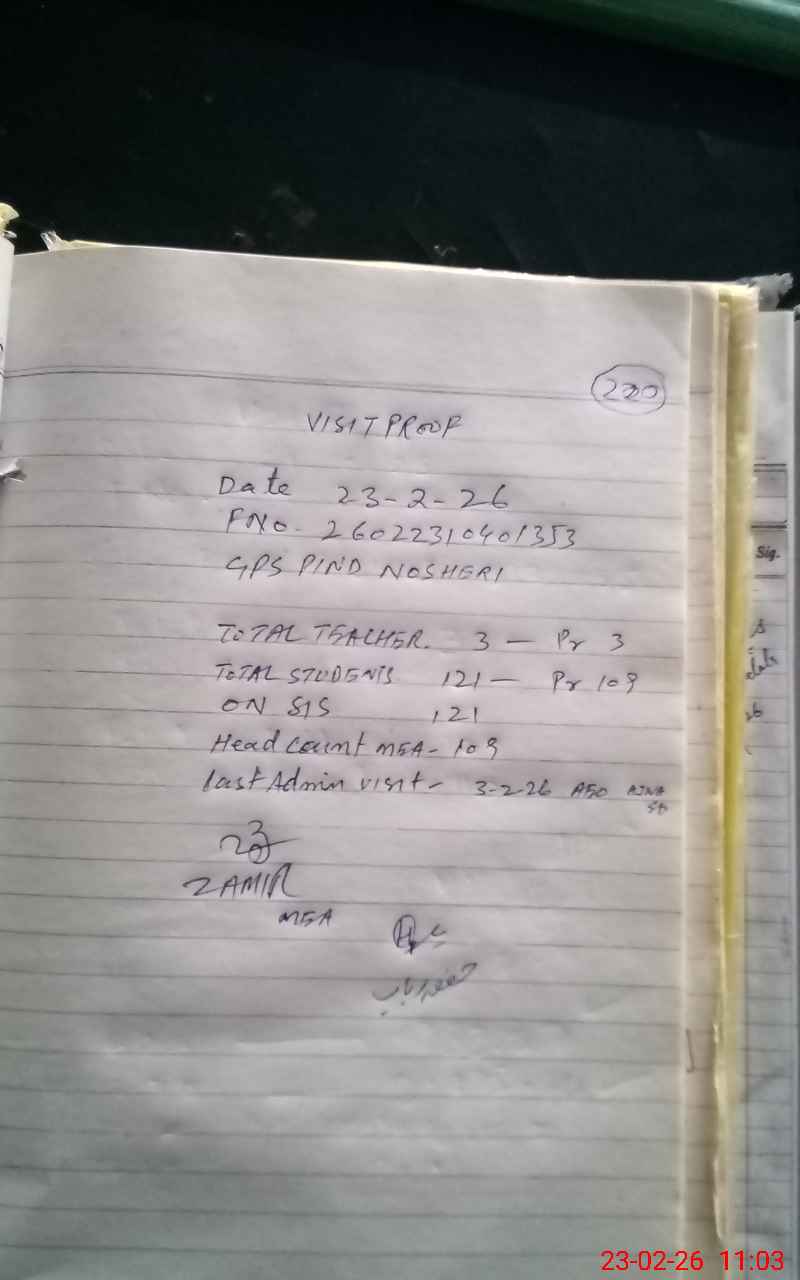 220
VISIT PROOF
Date 23-2-26
FNo. 26022310401353
GPS PIND NOSHERI
TOTAL TEACHER. 3 — Pr 3
TOTAL STUDENTS 121 — Pr 109
ON SIS 121
Head Count MEA - 109
Last Admin visit - 3-2-26 AEO
ZAMIR
MEA
Sig.
23-02-26 11:03